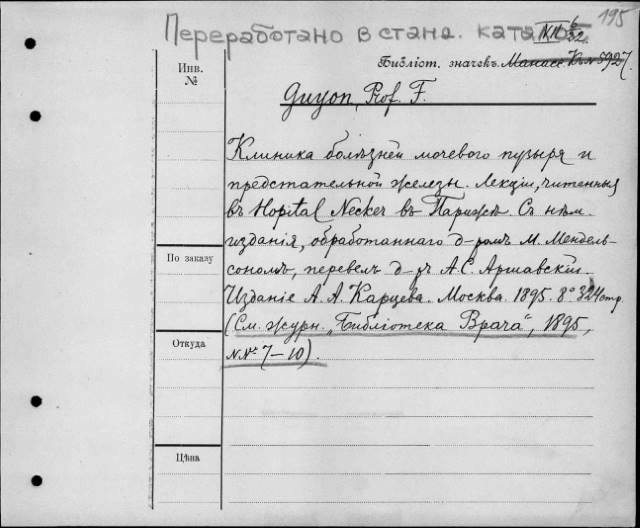 195
Переработано в станд. ката
XII 6/32
Библіот. значекъ Манассе К. № 5927.
Инв.
№
Guyon, Prof. F.
Клиника болѣзней мочевого пузыря и
предстательной железы. Лекціи, читанныя
въ Hopital Necker въ Парижѣ. Съ нѣм.
изданія, обработаннаго д-ромъ М. Мендель-
сономъ, перевелъ д-ръ А. С. Аршавскій.
Изданіе А. А. Карцева. Москва. 1895. 8° 324 стр.
(См. журн. „Библіотека Врача“, 1895,
№№ 7—10).
По заказу
Откуда
Цѣна